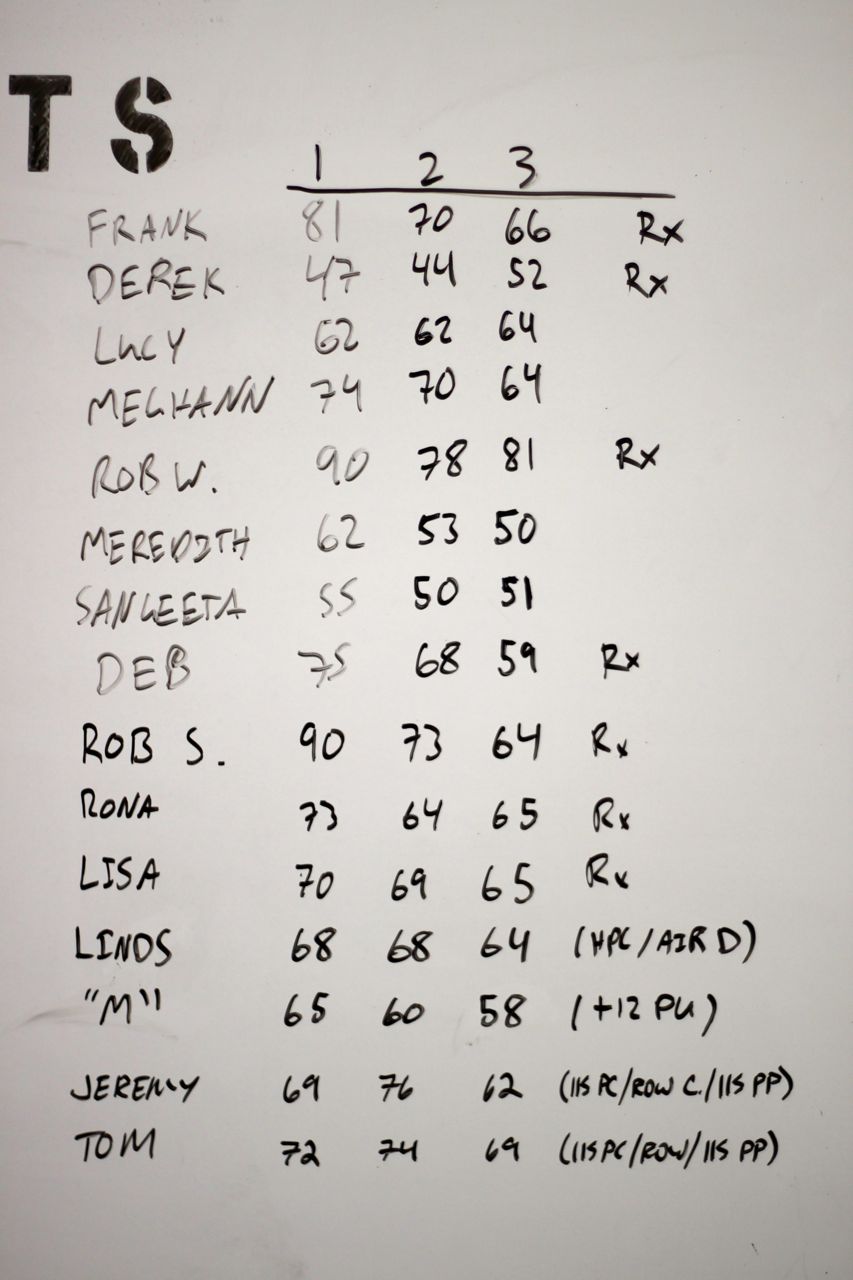 T S
1 2 3
FRANK 81 70 66 Rx
DEREK 47 44 52 Rx
LUCY 62 62 64
MEGHANN 74 70 64
ROB W. 90 78 81 Rx
MEREDITH 62 53 50
SANGEETA 55 50 51
DEB 75 68 59 Rx
ROB S. 90 73 64 Rx
RONA 73 64 65 Rx
LISA 70 69 65 Rx
LINDS 68 68 64 (HPC/AIR D)
"M" 65 60 58 (+12 PU)
JEREMY 69 76 62 (115 PC/ROW C./115 PP)
TOM 72 74 69 (115 PC/ROW/115 PP)